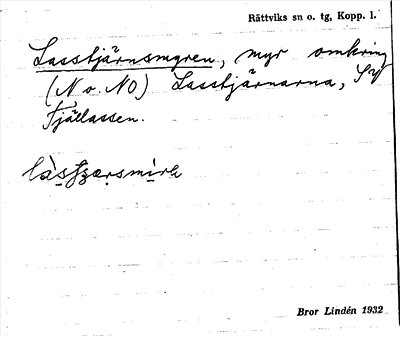 Rättviks sn o. tg, Kopp. l.
Lasstjärnsmyren, myr omkring
(N o. NO) Lasstjärnarna, SV
Fjällassen.
Bror Lindén 1932